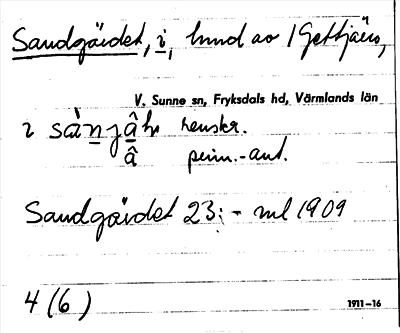 Sandgärdet, i, hmd av 1 Gettjärn,
V. Sunne sn, Fryksdals hd, Värmlands län
renskr.
prim.-ant.
Sandgärdet 23: - ml 1909
4 (6)
1911-16